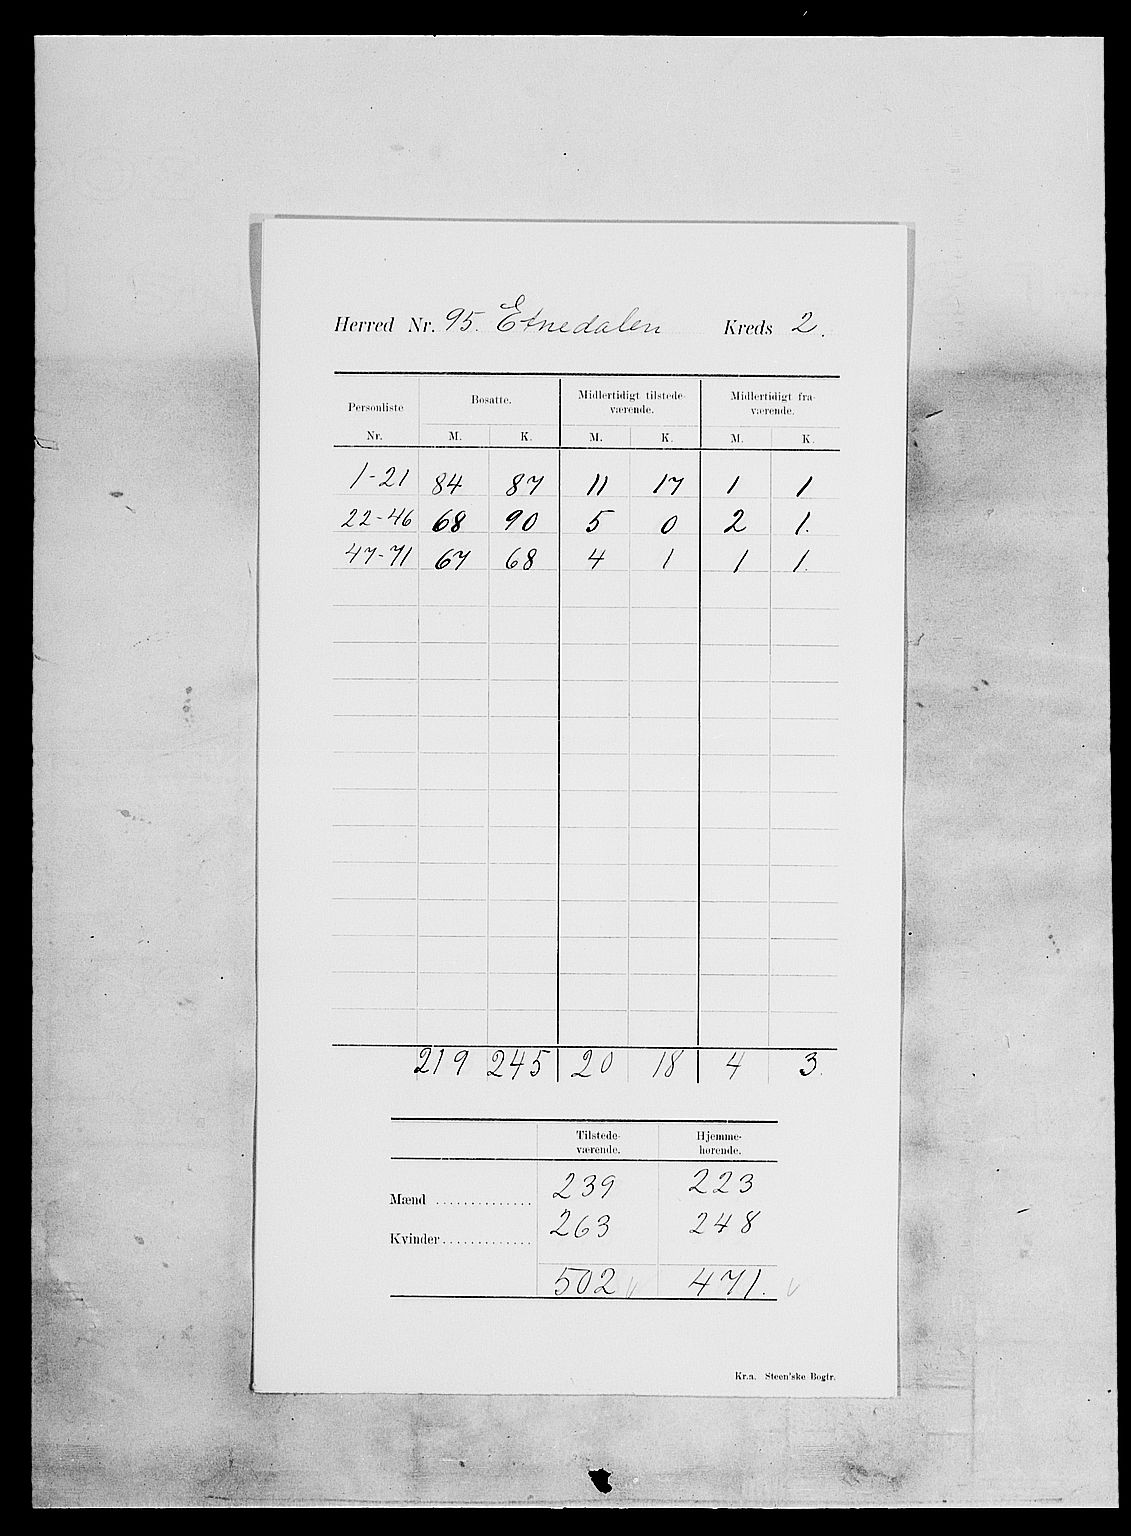 Herred Nr. 95. Etnedalen Kreds 2.
Personliste Bosatte. Midlertidigt tilstede- Midlertidigt fra-
værende. værende.
Nr. M. K. M. K. M. K.
1-21 84 87 11 17 1 1
22-46 68 90 5 0 2 1.
47-71 67 68 4 1 1 1.
219 245 20 18 4 3.
Tilstede- Hjemme-
værende. hørende.
Mænd .............. 239 223
Kvinder............. 263 248
502 471.
Kr.a. Steen'ske Bogtr.